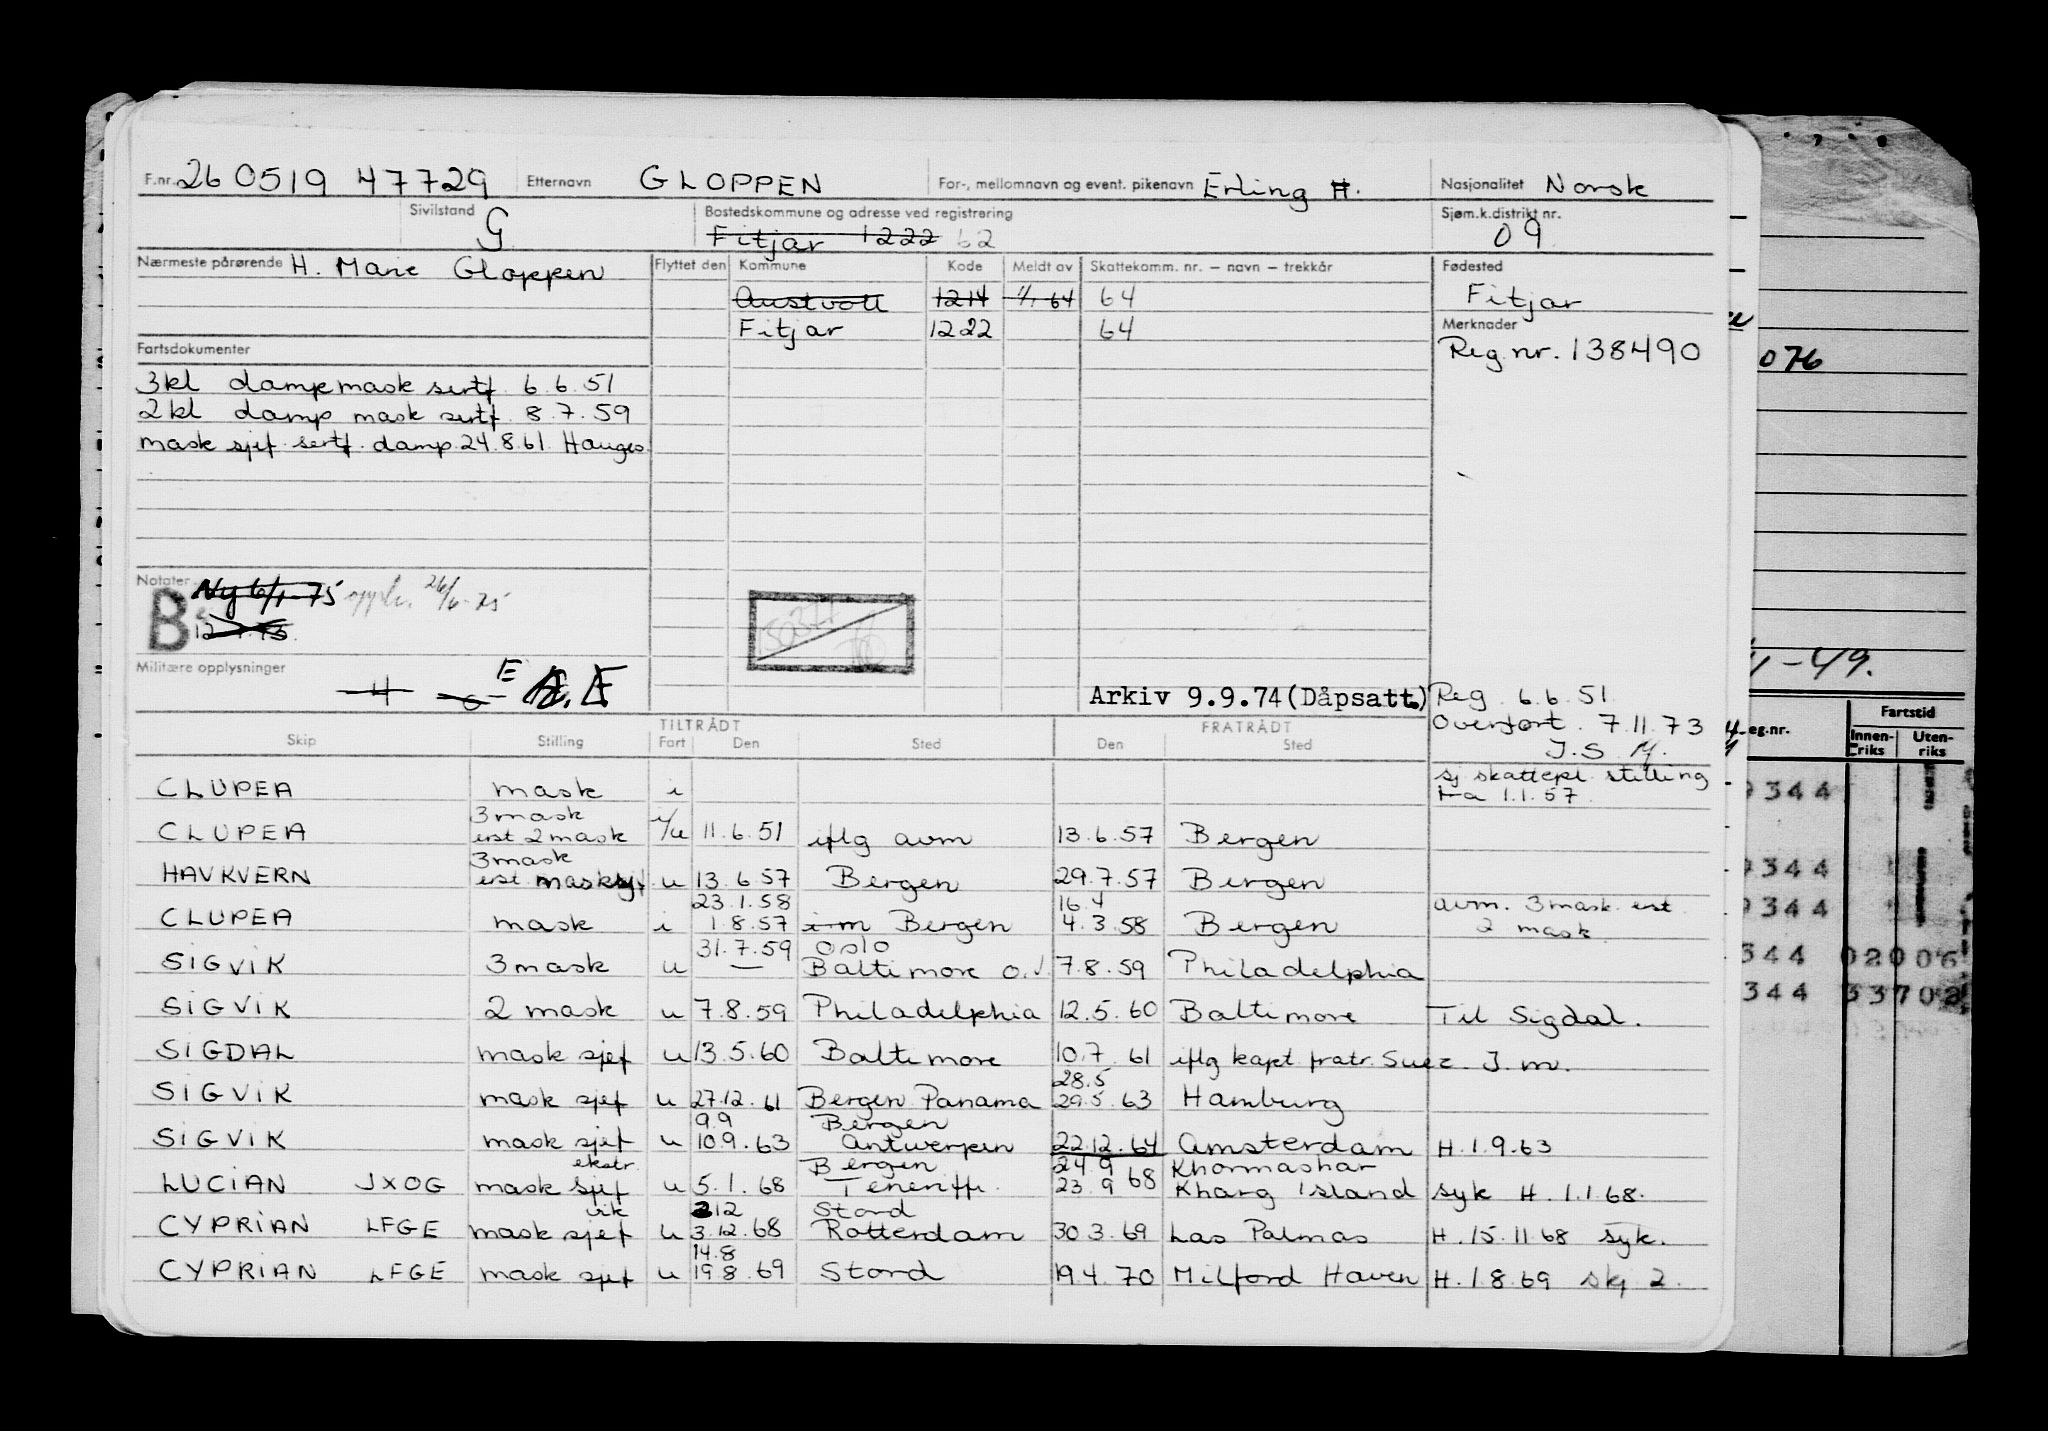 F.nr. 260519 47729 Etternavn GLOPPEN For-, mellomnavn og event. pikenavn Erling H. Nasjonalitet Norsk
Sivilstand G Bostedskommune og adresse ved registrering Fitjar 1222 62 Sjøm.k.distrikt nr. 09
Nærmeste pårørende H. Marie Gloppen Flyttet den Kommune Kode Meldt av Skattekomm. nr. – navn – trekkår Fødested
Austvoll 1214 1/1 64 64 Fitjar
Fitjar 1222 64 Merknader
Reg.nr. 138490
076
Fartsdokumenter
3kl damp mask sertf. 6.6.51
2kl damp mask sertf 8.7.59
mask sjef sertf. damp 24.8.61 Hauges.
Notater Ny 6/1-75 26/6-75
B
Militære opplysninger
4 E
1-49.
Arkiv 9.9.74(Dåpsatt.) Reg. 6.6.51
Overført. 7.11.73
J.S M.
Skip Stilling TILTRÅDT Fart Den Sted FRATRÅDT Den Sted
eg.nr. Fartstid Innen-riks Uten-riks
sj skattepl. stilling
fra 1.1.57
CLUPEA mask i
9344
CLUPEA 3mask erst 2mask i/u 11.6.51 iflg avm 13.6.57 Bergen
HAVKVERN 3mask erst masksj. u 13.6.57 Bergen 29.7.57 Bergen
9344
CLUPEA mask i 23.1.58 1.8.57 i m Bergen 16.4 4.3.58 Bergen avm. 3mask erst 2 mask
9344
SIGVIK 3mask u 31.7.59 — Oslo Baltimore o. 7.8.59 Philadelphia
344 02006
SIGVIK 2 mask u 7.8.59 Philadelphia 12.5.60 Baltimore Til Sigdal.
344 33702
SIGDAL mask sjef u 13.5.60 Baltimore 10.7.61 iflg kapt fratr. Suez. J.m.
SIGVIK mask sjef u 27.12.61 Bergen Panama 28.5 29.5.63 Hamburg
SIGVIK mask sjef u 9.9 10.9.63 Bergen Antwerpen 22.12.64 Amsterdam H.1.9.63
LUCIAN JXOG mask sjef ekstr. u 5.1.68 Bergen Teneriffe. 24.9 23.9 68 Khormashar Kharg Island syk H. 1.1.68.
CYPRIAN LFGE mask sjef vik u 2.12 3.12.68 Stord Rotterdam 30.3.69 Las Palmas H. 15.11.68 syk.
CYPRIAN LFGE mask sjef u 14.8 19.8.69 Stord 19.4.70 Milford Haven H.1.8.69 skj 2.